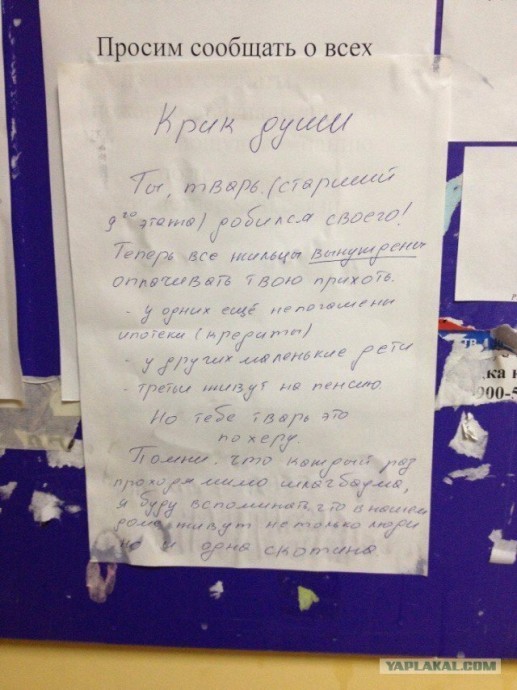 Просим сообщать о всех
Крик души
Ты, тварь (старший
9го этажа) добился своего!
Теперь все жильцы вынуждены
оплачивать твою прихоть.
- у одних ещё непогашены
ипотеки (кредиты)
- у других маленькие дети
- третьи живут на пенсию
Но тебе тварь это
похеру.
Помни, что каждый раз
проходя мимо шлагбаума,
я буду вспоминать что в нашем
доме живут не только люди
но и одна скотина
ка
900-5
YAPLAKAL.COM